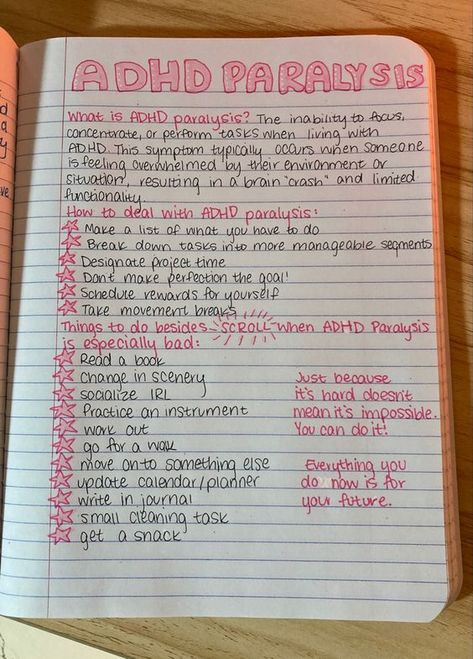 ADHD PARALYSIS
What is ADHD paralysis? The inability to focus,
concentrate, or perform tasks when living with
ADHD. This symptom typically occurs when someone
is feeling overwhelmed by their environment or
situation, resulting in a brain "crash" and limited
functionality.
How to deal with ADHD paralysis:
Make a list of what you have to do
Break down tasks into more manageable segments
Designate project time
Don't make perfection the goal!
Schedule rewards for yourself
Take movement breaks
Things to do besides SCROLL when ADHD Paralysis
is especially bad:
Read a book
change in scenery
socialize IRL
Practice an instrument
work out
go for a walk
move on to something else
update calendar/planner
write in journal
small cleaning task
get a snack
Just because
it's hard doesn't
mean it's impossible.
You can do it!
Everything you
do now is for
your future.